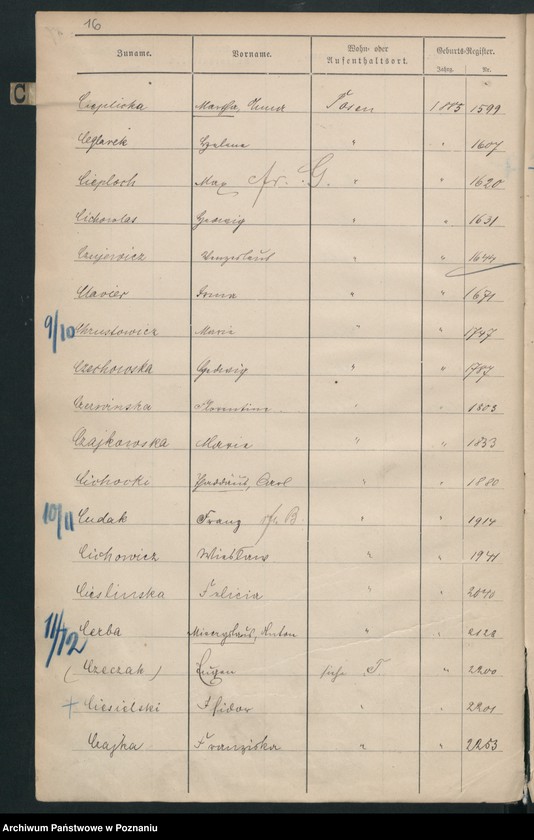 16
Zuname. Vorname. Wohn- oder Aufenthaltsort. Geburts-Register.
Jahrg. Nr.
C
Cieplicka Martha, Posen 1885 1599
Ceglarek Helene " " 1607
Cieploch Max fr. G. " " 1620
Cichowlas Hedwig " " 1631
Czujewicz Wenzeslaus " " 1644
Clavier Irma " " 1671
9/10 Chrustowicz Marie " " 1747
Czechowska Hedwig " " 1787
Czerwinska Florentine " " 1803
Czajkowska Marie " " 1833
Cichocki Thaddäus, Carl " " 1880
10/11 Cudak Franz fr. B. " " 1914
Cichowicz Wieslaw " " 1941
Cieslinska Felicia " " 2040
11/12 Cerba Mieczyslaus, Anton " " 2128
(Czeczak) Eugen siehe T " 2200
+ Ciesielski Isidor " " 2201
Czajka Franziska " " 2253
Archiwum Państwowe w Poznaniu